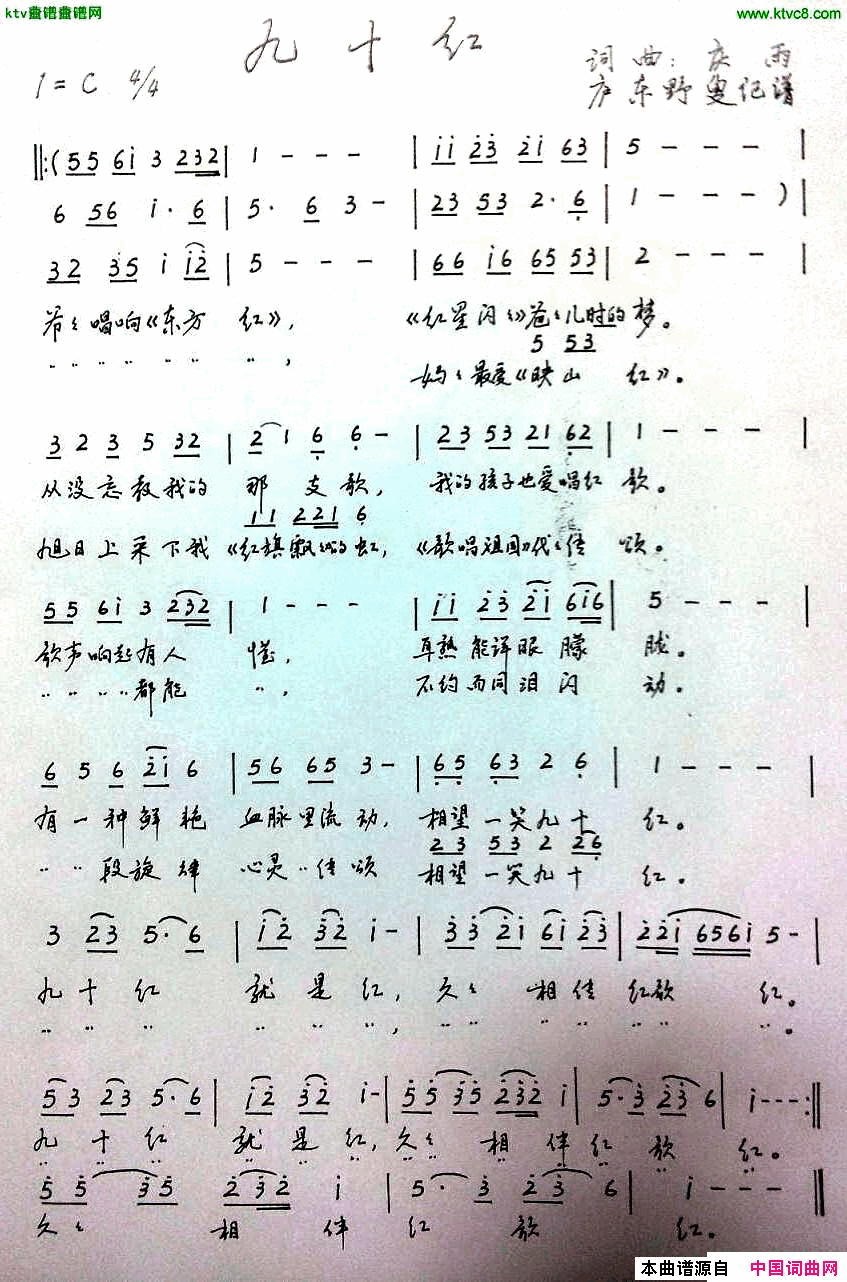 ktv盘谱盘谱网
www.ktvc8.com
九十红
1=C 4/4
词曲:庆雨
庐东野叟记谱
‖:(55 6i 3 232 | 1 - - - | ii 23 2i 63 | 5 - - - |
6 56 i· 6 | 5· 6 3 - | 23 53 2· 6 | 1 - - - )|
32 35 i i2 | 5 - - - | 66 i6 65 53 | 2 - - - |
爷々唱响《东方红》, 《红星闪々》爸々儿时的梦。
5 53
〃〃〃〃〃〃〃, 妈々最爱《映山红》。
3 2 3 5 32 | 2 1 6 6 - | 23 53 21 62 | 1 - - - |
从没忘教我的那支歌, 我的孩子也爱唱红歌。
11 221 6
旭日上采下我《红旗飘々》的虹, 《歌唱祖国》代々传颂。
55 6i 3 232 | 1 - - - | ii 23 2i 6i6 | 5 - - - |
歌声响起有人惺, 耳熟能详眼朦胧。
〃〃〃〃都能〃, 不约而同泪闪动。
6 5 6 2i 6 | 56 65 3 - | 65 63 2 6 | 1 - - - |
有一种鲜艳血脉里流动, 相望一笑九十红。
23 53 2 26
〃〃段旋律心灵〃传颂 相望一笑九十红。
3 23 5· 6 | i2 32 i - | 33 2i 6i 23 | 22i 656i 5 - |
九十红就是红, 久々相传红歌红。
〃〃〃〃〃〃, 〃〃〃〃〃〃〃。
53 23 5· 6 | i2 32 i - | 55 35 232 i | 5· 3 23 6 | i - - - :‖
九十红就是红, 久々相伴红歌红。
5 5 35 232 i | 5· 3 2 3 6 | i - - - ‖
久々相伴红歌红。
本曲谱源自 中国词曲网